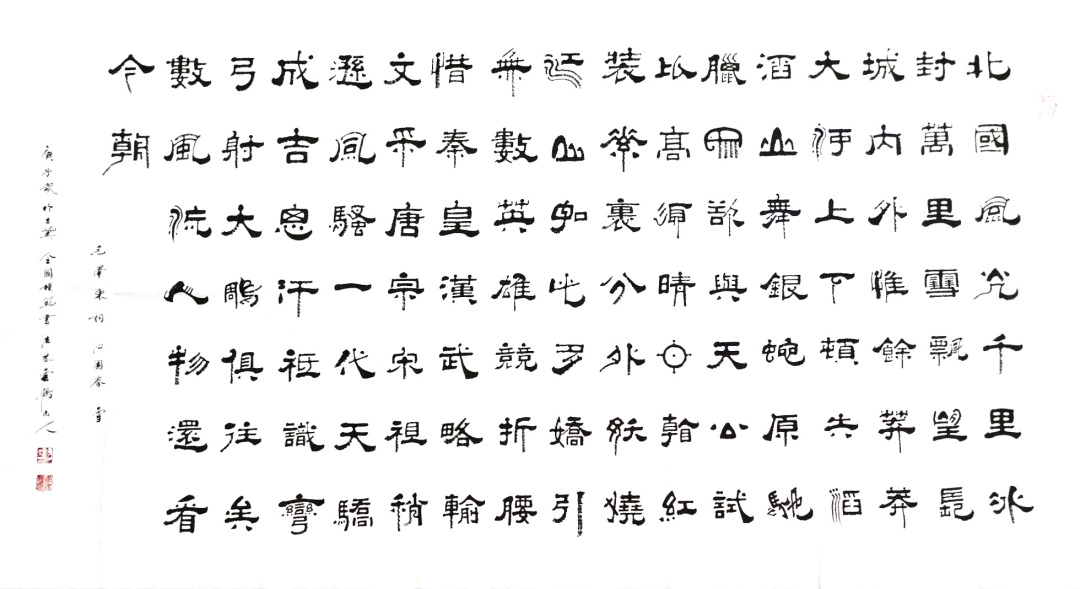 北國風光千里冰
封萬里雪飄望長
城內外惟餘莽莽
大河上下頓失滔
滔山舞銀蛇原馳
臘象欲與天公試
比高須晴日看紅
裝素裹分外妖嬈
江山如此多嬌引
無數英雄競折腰
惜秦皇漢武略輸
文采唐宗宋祖稍
遜風騷一代天驕
成吉思汗祗識彎
弓射大鵰俱往矣
數風流人物還看
今朝
毛澤東詞沁園春雪
庚子歲 全國 書法家 山人